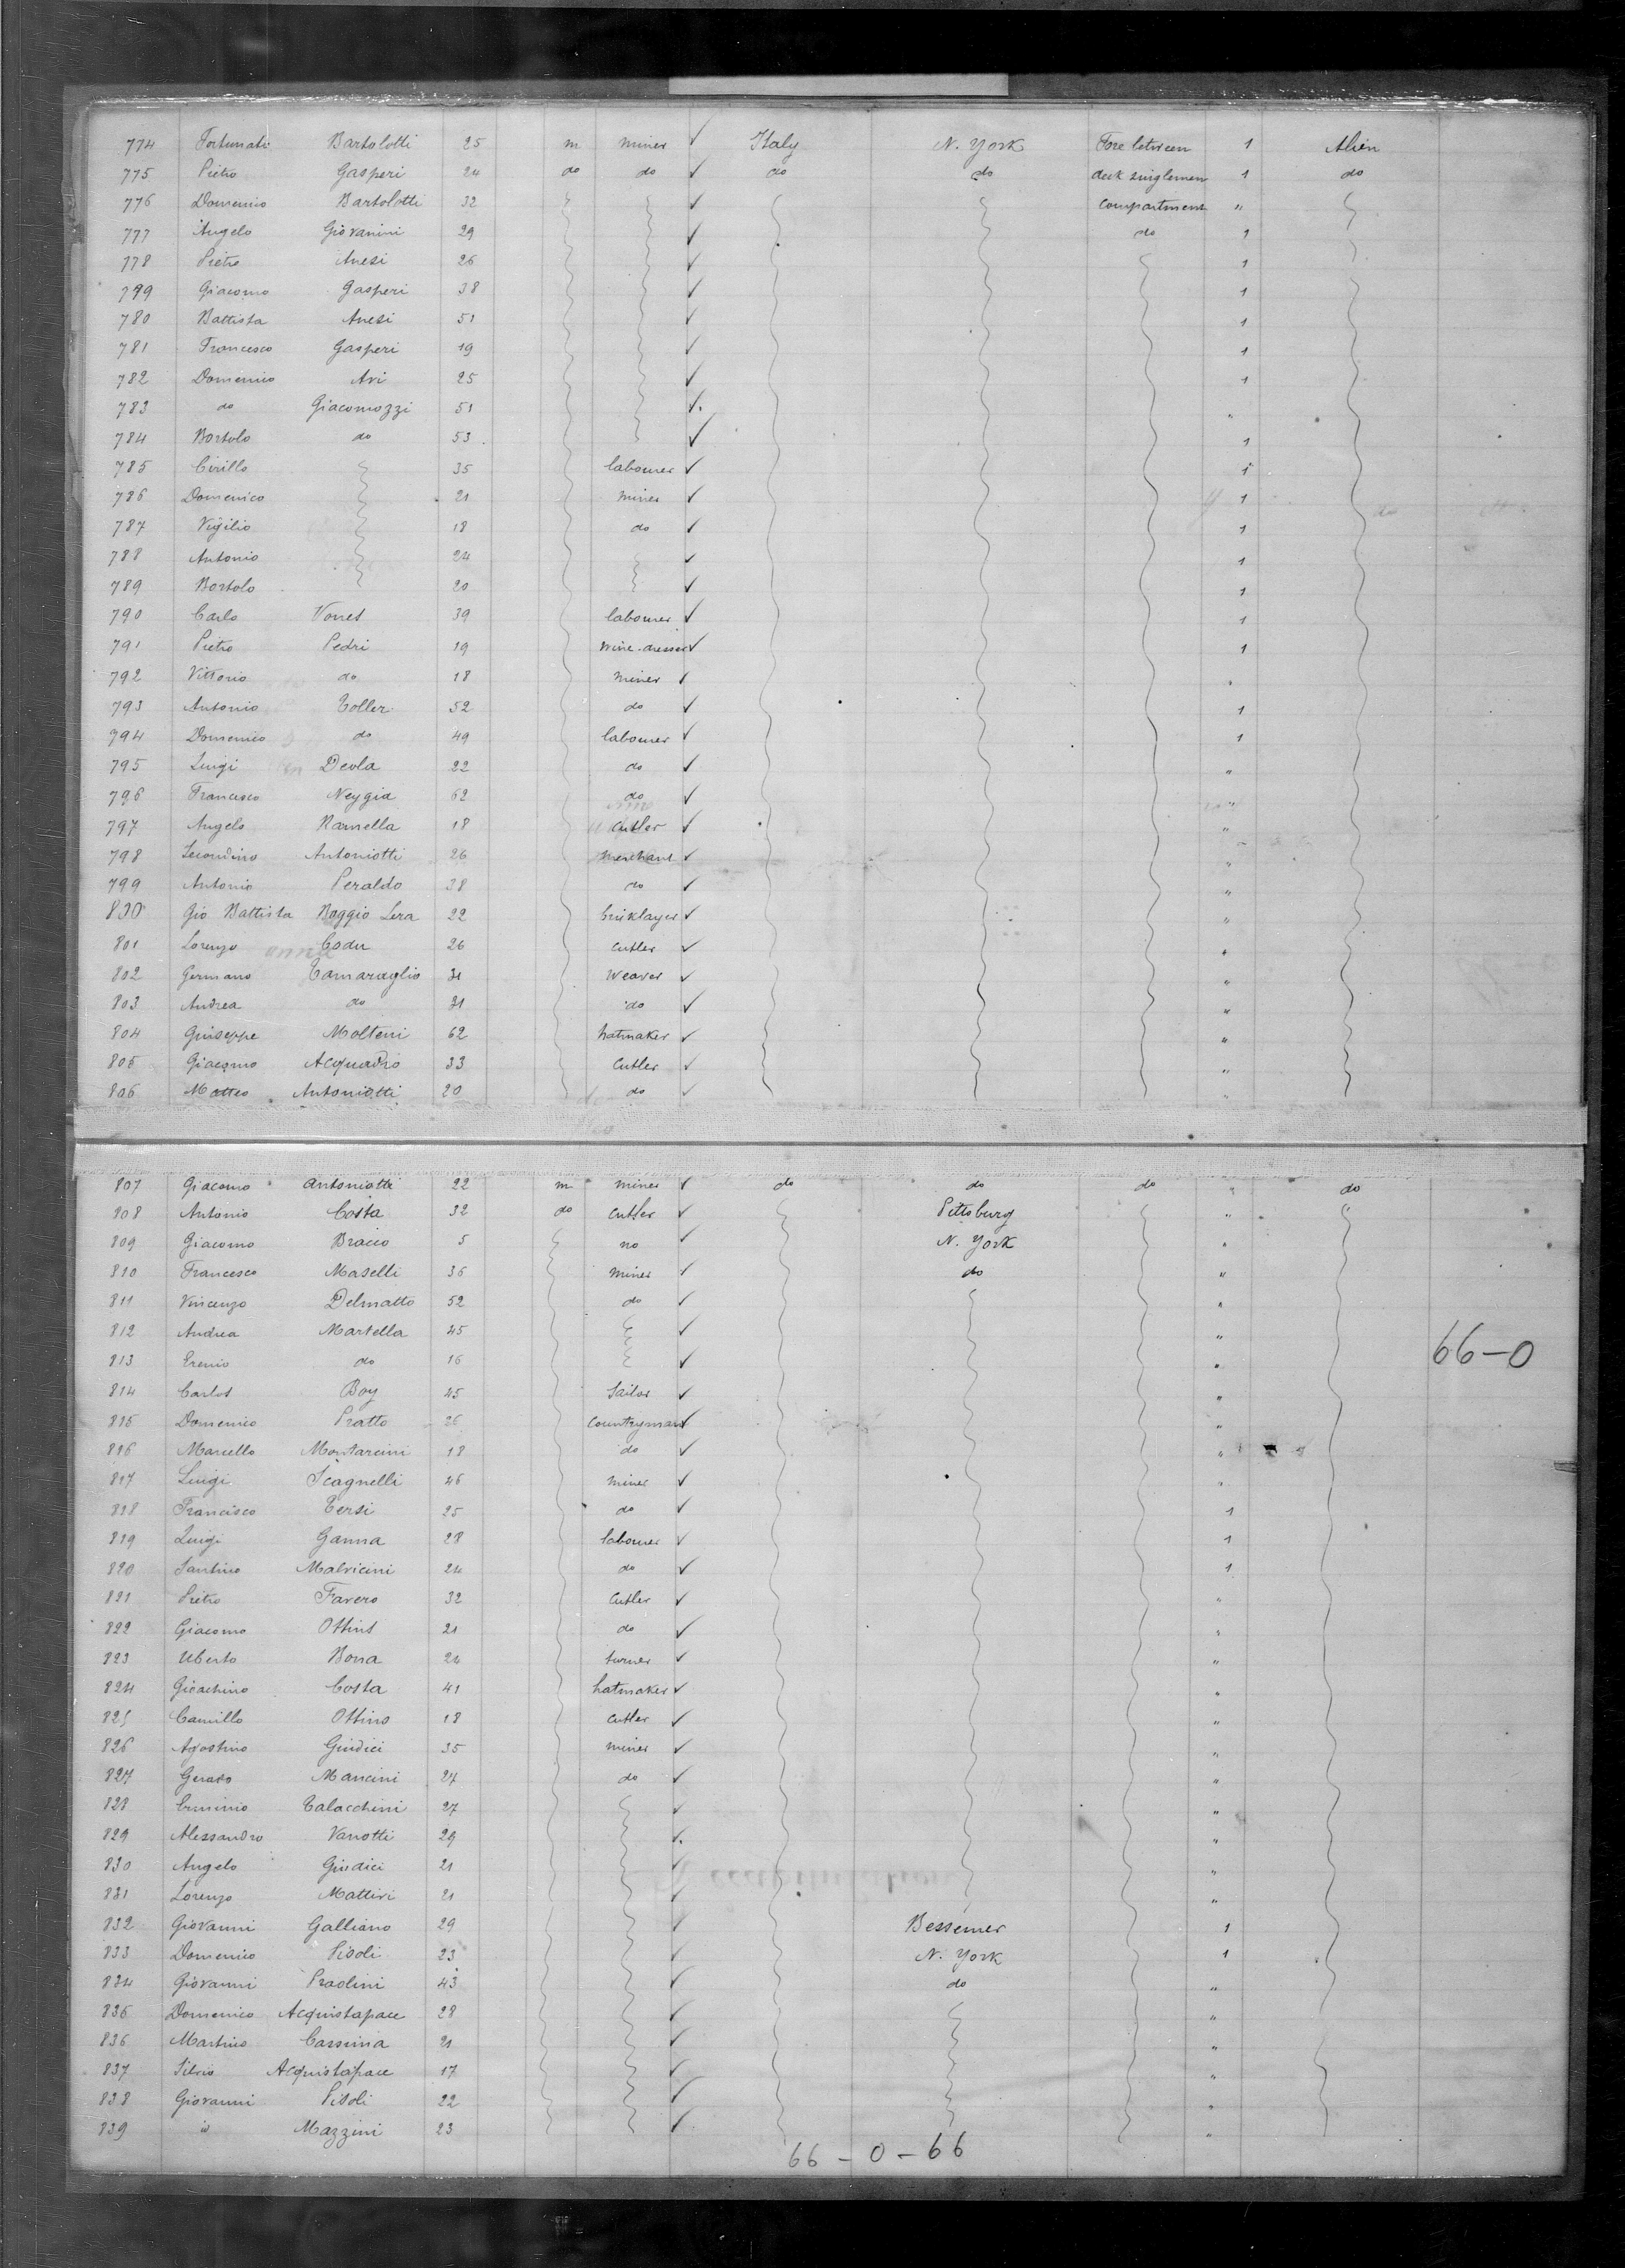 774 Fortunato Bartolotti 25 m miner ✓ Italy N. York Fore between 1 Alien
775 Pietro Gasperi 24 do do ✓ do do deck singlemen 1 do
776 Domenico Bartolotti 32 ✓ compartment "
777 Angelo Giovanini 29 ✓ do 1
778 Pietro Anesi 26 ✓ 1
799 Giacomo Gasperi 38 ✓ 1
780 Battista Anesi 51 ✓ 1
781 Francesco Gasperi 19 ✓ 1
782 Domenico Avi 25 ✓ 1
783 do Giacomozzi 51 ✓ "
784 Bortolo do 53 ✓ 1
785 Cirillo 35 labourer ✓ 1
786 Domenico 21 miner ✓ 1
787 Vigilio 18 do ✓ 1
788 Antonio 24 ✓ 1
789 Bortolo 20 ✓ 1
790 Carlo 39 labourer ✓ 1
791 Pietro Pedri 19 wine-dresser ✓ 1
792 Vittorio do 18 miner ✓ "
793 Antonio Toller 52 do ✓ 1
794 Domenico do 49 labourer ✓ 1
795 Luigi Deola 22 do ✓ "
796 Francesco Neygia 62 do ✓ "
797 Angelo Ramella 18 cutler ✓ "
798 Secondino Antoniotti 26 merchant ✓ "
799 Antonio Peraldo 38 do ✓ "
800 Gio Battista Boggio Lera 22 bricklayer ✓ "
801 Lorenzo Coda 26 cutler ✓ "
802 Germano Tamaraglio 31 weaver ✓ "
803 Andrea do 31 do ✓ "
804 Guiseppe Molteni 62 hatmaker ✓ "
805 Giacomo Acquadro 33 cutler ✓ "
806 Matteo Antoniotti 20 do ✓ "
807 Giacomo Antoniotti 22 m miner ✓ do do do " do
808 Antonio Costa 32 do cutler ✓ Pittsburg "
809 Giacomo Bracco 5 no ✓ N. York "
810 Francesco Maselli 36 miner ✓ do "
811 Vincenzo Delmatto 52 do ✓ "
812 Andrea Martella 45 ✓ "
66-0
813 Erenio do 16 ✓ "
814 Carlot Boy 45 Sailor ✓ "
815 Domenico Pratto 26 countryman ✓ "
816 Marcello Montarcini 18 do ✓ "
817 Luigi Scagnelli 46 miner ✓ "
818 Francisco Tersi 25 do ✓ 1
819 Luigi Ganna 28 labourer ✓ 1
820 Santino Malvicini 24 do ✓ 1
821 Pietro Favero 32 cutler ✓ "
822 Giacomo 21 do ✓ "
823 Uberto Bona 24 turner ✓ "
824 Gioachino Costa 41 hatmaker ✓ "
825 Camillo Ottino 18 cutler ✓ "
826 Agostino Giudici 35 miner ✓ "
827 Mancini 27 do ✓ "
828 Erminio Talacchini 27 ✓ "
829 Alessandro Vanotti 29 ✓ "
830 Angelo Giudici 21 ✓ "
831 Lorenzo 21 ✓ "
832 Giovanni Galliano 29 ✓ Bessemer 1
833 Domenico Pisoli 23 ✓ N. York 1
834 Giovanni Praolini 43 ✓ do "
835 Domenico Acquistapace 28 ✓ "
836 Martino Cassina 21 ✓ "
837 Silvio Acquistapace 17 ✓ "
838 Giovanni Pisoli 22 ✓ "
839 id Mazzini 23 ✓ "
66-0-66